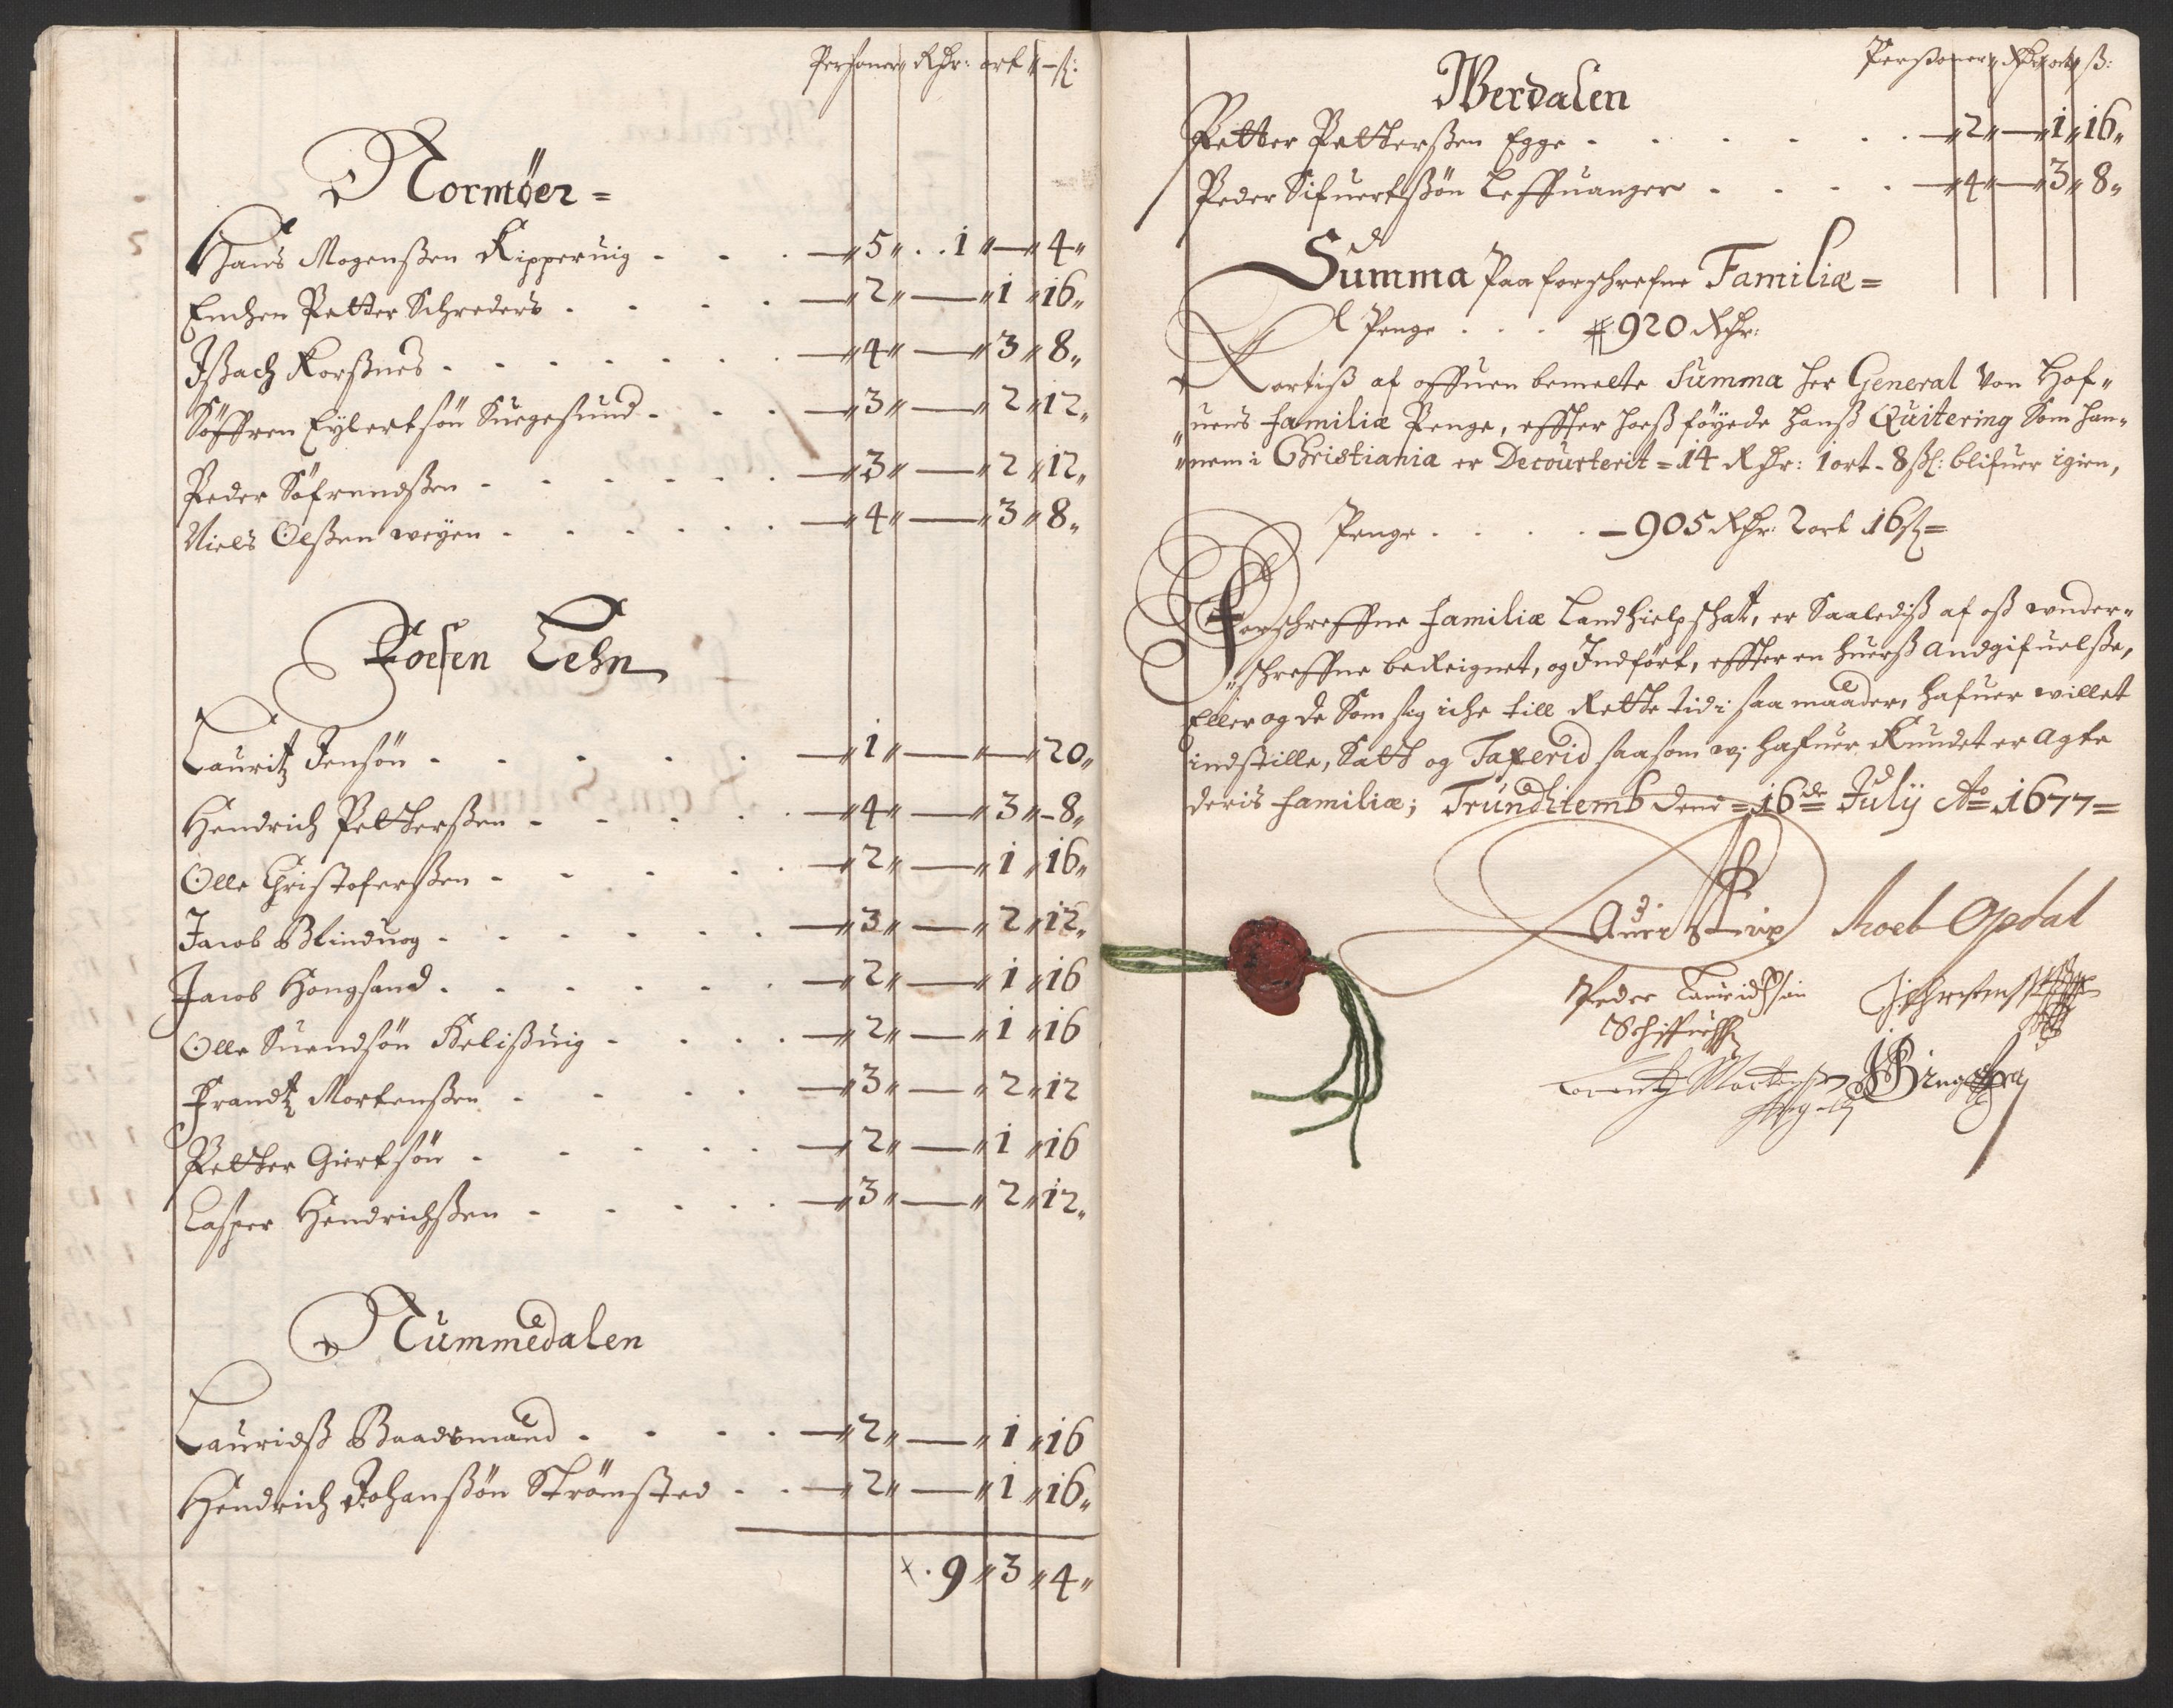 Personer Rdr: ort ß:
Normøer =
Hans Mogenßen Kipperuig - - - 5 1 — 4
Enchen Petter Schreders - - - 2 — 1 16
Jßach Korßnes - - - 4 — 3 8
Søffren Eylertsøn Suegesund - - - 3 — 2 12
Peder Søfrendßen - - - 3 — 2 12
Niels Olßen weyen - - - 4 — 3 8
Foesen Lehn
Lauritz Jensøn - - - 1 — — 20
Hendrich Petterßen - - - 4 — 3 8
Olle Christoferßen - - - 2 — 1 16
Jacob Blinduog - - - 3 — 2 12
Jacob Hongsand - - - 2 — 1 16
Olle Suendsøn Kelißuig - - - 2 — 1 16
Frandtz Mortenßen - - - 3 — 2 12
Petter Giertsøn - - - 2 — 1 16
Casper Hendrichßen - - - 3 — 2 12
Nummedalen
Lauridß Baadsmand - - - 2 — 1 16
Hendrich Johanßøn Strømsted - - 2 — 1 16
9 3 4
Personer Rdr ort ß:
Werdalen
Petter Petterßen Egge - - - 2 — 1 16
Peder Sifuertßøn Leffuanger - - - 4 — 3 8
Summa Paa forschrefne Familiæ =
Penge . . . 920 Rdr:
Kortiß af offuen bemelte Summa her General Von Hof„
„uens familiæ Penge, effter hoeß føyede hanß Quitering Som han„
„nem i Christiania er Decourterit = 14 Rdr: 1 ort - 8 ßl: blifuer igien,
Penge . . . . — 905 Rdr: 2 ort 16 ß =
Forschreffne familiæ Landhielp schat, er Saalediß af oß wnder„
„schreffne bereignet, og Indført, effter en huerß andgifuelße,
Eller og de Som sig iche till Rette tid i saa maader, hafuer willet
indstille, Satt og Taxerid saa som wi hafuer Kundet eragte
deris familiæ; Trundhemb dend = 16de July Ao 1677 =
Peder Lauridsøn
Schiffuelß